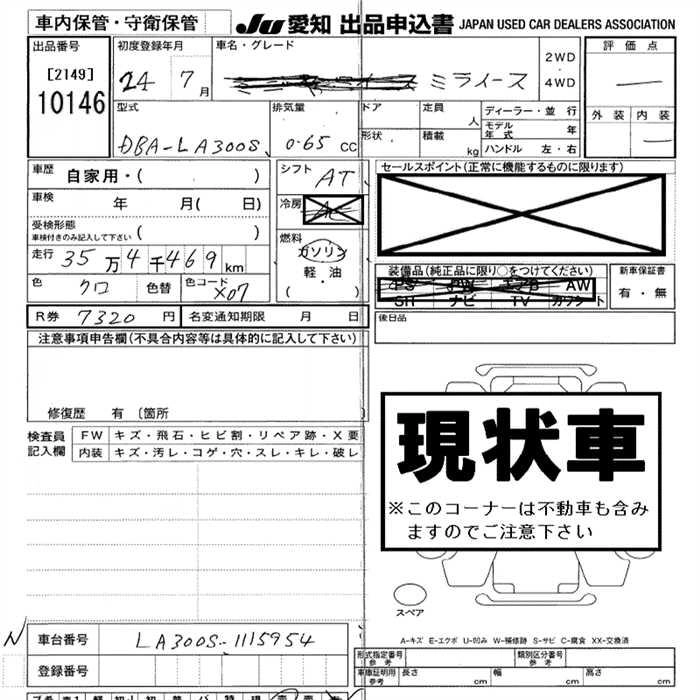 車内保管・守衛保管
JU 愛知 出品申込書 JAPAN USED CAR DEALERS ASSOCIATION
出品番号
[2149]
10146
初度登録年月
24 7月
車名・グレード
ミライース
2WD
・
4WD
評価点
—
外装 内装
—
型式
DBA-LA300S
排気量
0.65 CC
ドア
形状
定員
人
積載
kg
ディーラー・並行
モデル年式 年
ハンドル 左・右
車歴 自家用・( )
車検 年 月( 日)
受検形態
車検付きのみ記入して下さい ( )
走行 35万4千469km
色 クロ 色替 色コード X07
シフト AT
冷房 AC
燃料
ガソリン
軽・油
( )
セールスポイント(正常に機能するものに限ります)
装備品(純正品に限り○をつけてください)
PS PW エアB AW
SR ナビ TV カワシート
新車保証書
有・無
R券 7320 円 名変通知期限 月 日
後日品
注意事項申告欄(不具合内容等は具体的に記入して下さい)
修復歴 有 〔箇所
検査員
記入欄
FW キズ・飛石・ヒビ割・リペア跡・X要
内装 キズ・汚レ・コゲ・穴・スレ・キレ・破レ
現状車
※このコーナーは不動車も含み
ますのでご注意下さい
スペア
A-キズ E-エクボ U-凹み W-補修跡 S-サビ C-腐食 XX-交換済
N
車台番号 LA300S-1115954
登録番号
形式指定番号
参考
類別区分番号
参考
車庫証明用
参考
長さ cm 幅 cm 高さ cm